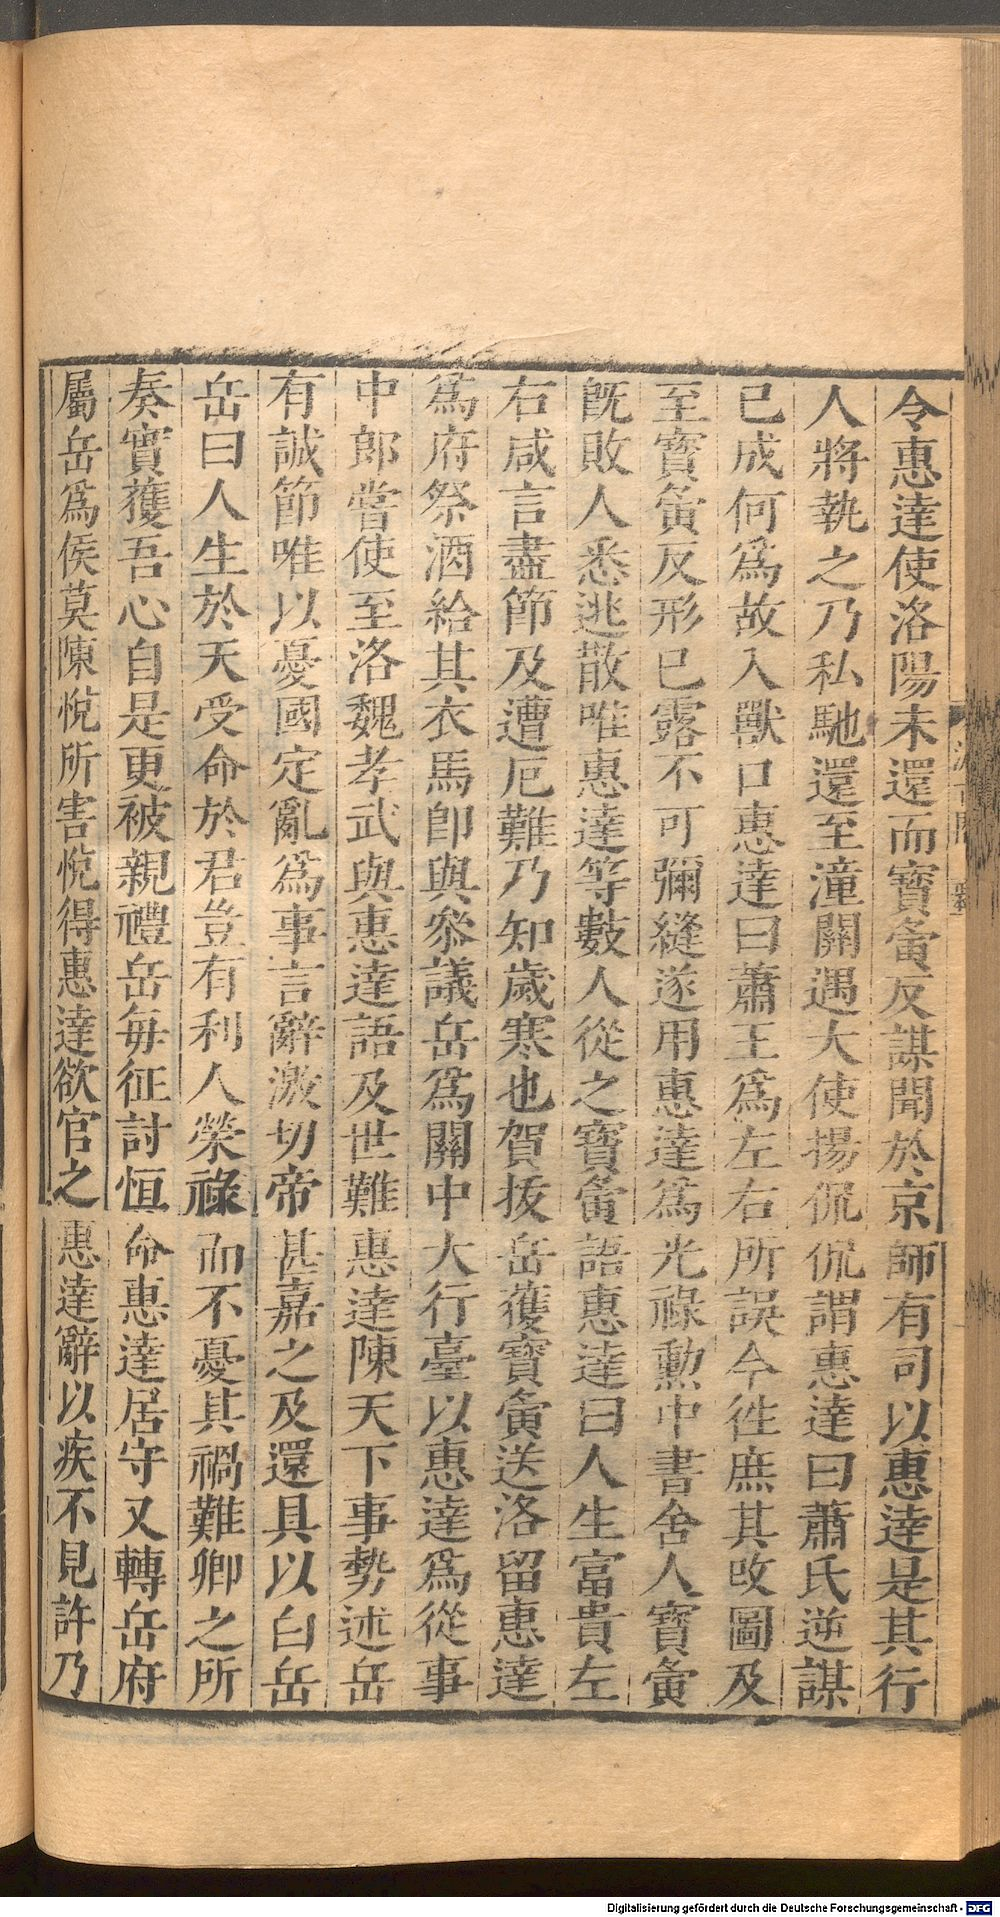 令惠達使洛陽未還而寶夤反謀聞於京師有司以惠達是其行
人將執之乃私馳還至潼關遇大使揚侃侃謂惠達曰蕭氏逆謀
已成何爲故入獸口惠達曰蕭王爲左右所誤今徃庶其改圖及
至寶夤反形已露不可彌縫遂用惠達爲光祿勳中書舍人寶夤
旣敗人悉逃散唯惠達等數人從之寶夤語惠達曰人生富貴左
右咸言盡節及遭厄難乃知歲寒也賀拔岳獲寶夤送洛留惠達
爲府祭酒給其衣馬卽與參議岳爲關中大行臺以惠達爲從事
中郎嘗使至洛魏孝武與惠達語及世難惠達陳天下事勢述岳
有誠節唯以憂國定亂爲事言辭激切帝甚嘉之及還具以白岳
岳曰人生於天受命於君豈有利人榮祿而不憂其禍難卿之所
奏實獲吾心自是更被親禮岳每征討恒命惠達居守又轉岳府
屬岳爲侯莫陳悅所害悅得惠達欲官之惠達辭以疾不見許乃
Digitalisierung gefördert durch die Deutsche Forschungsgemeinschaft - DFG